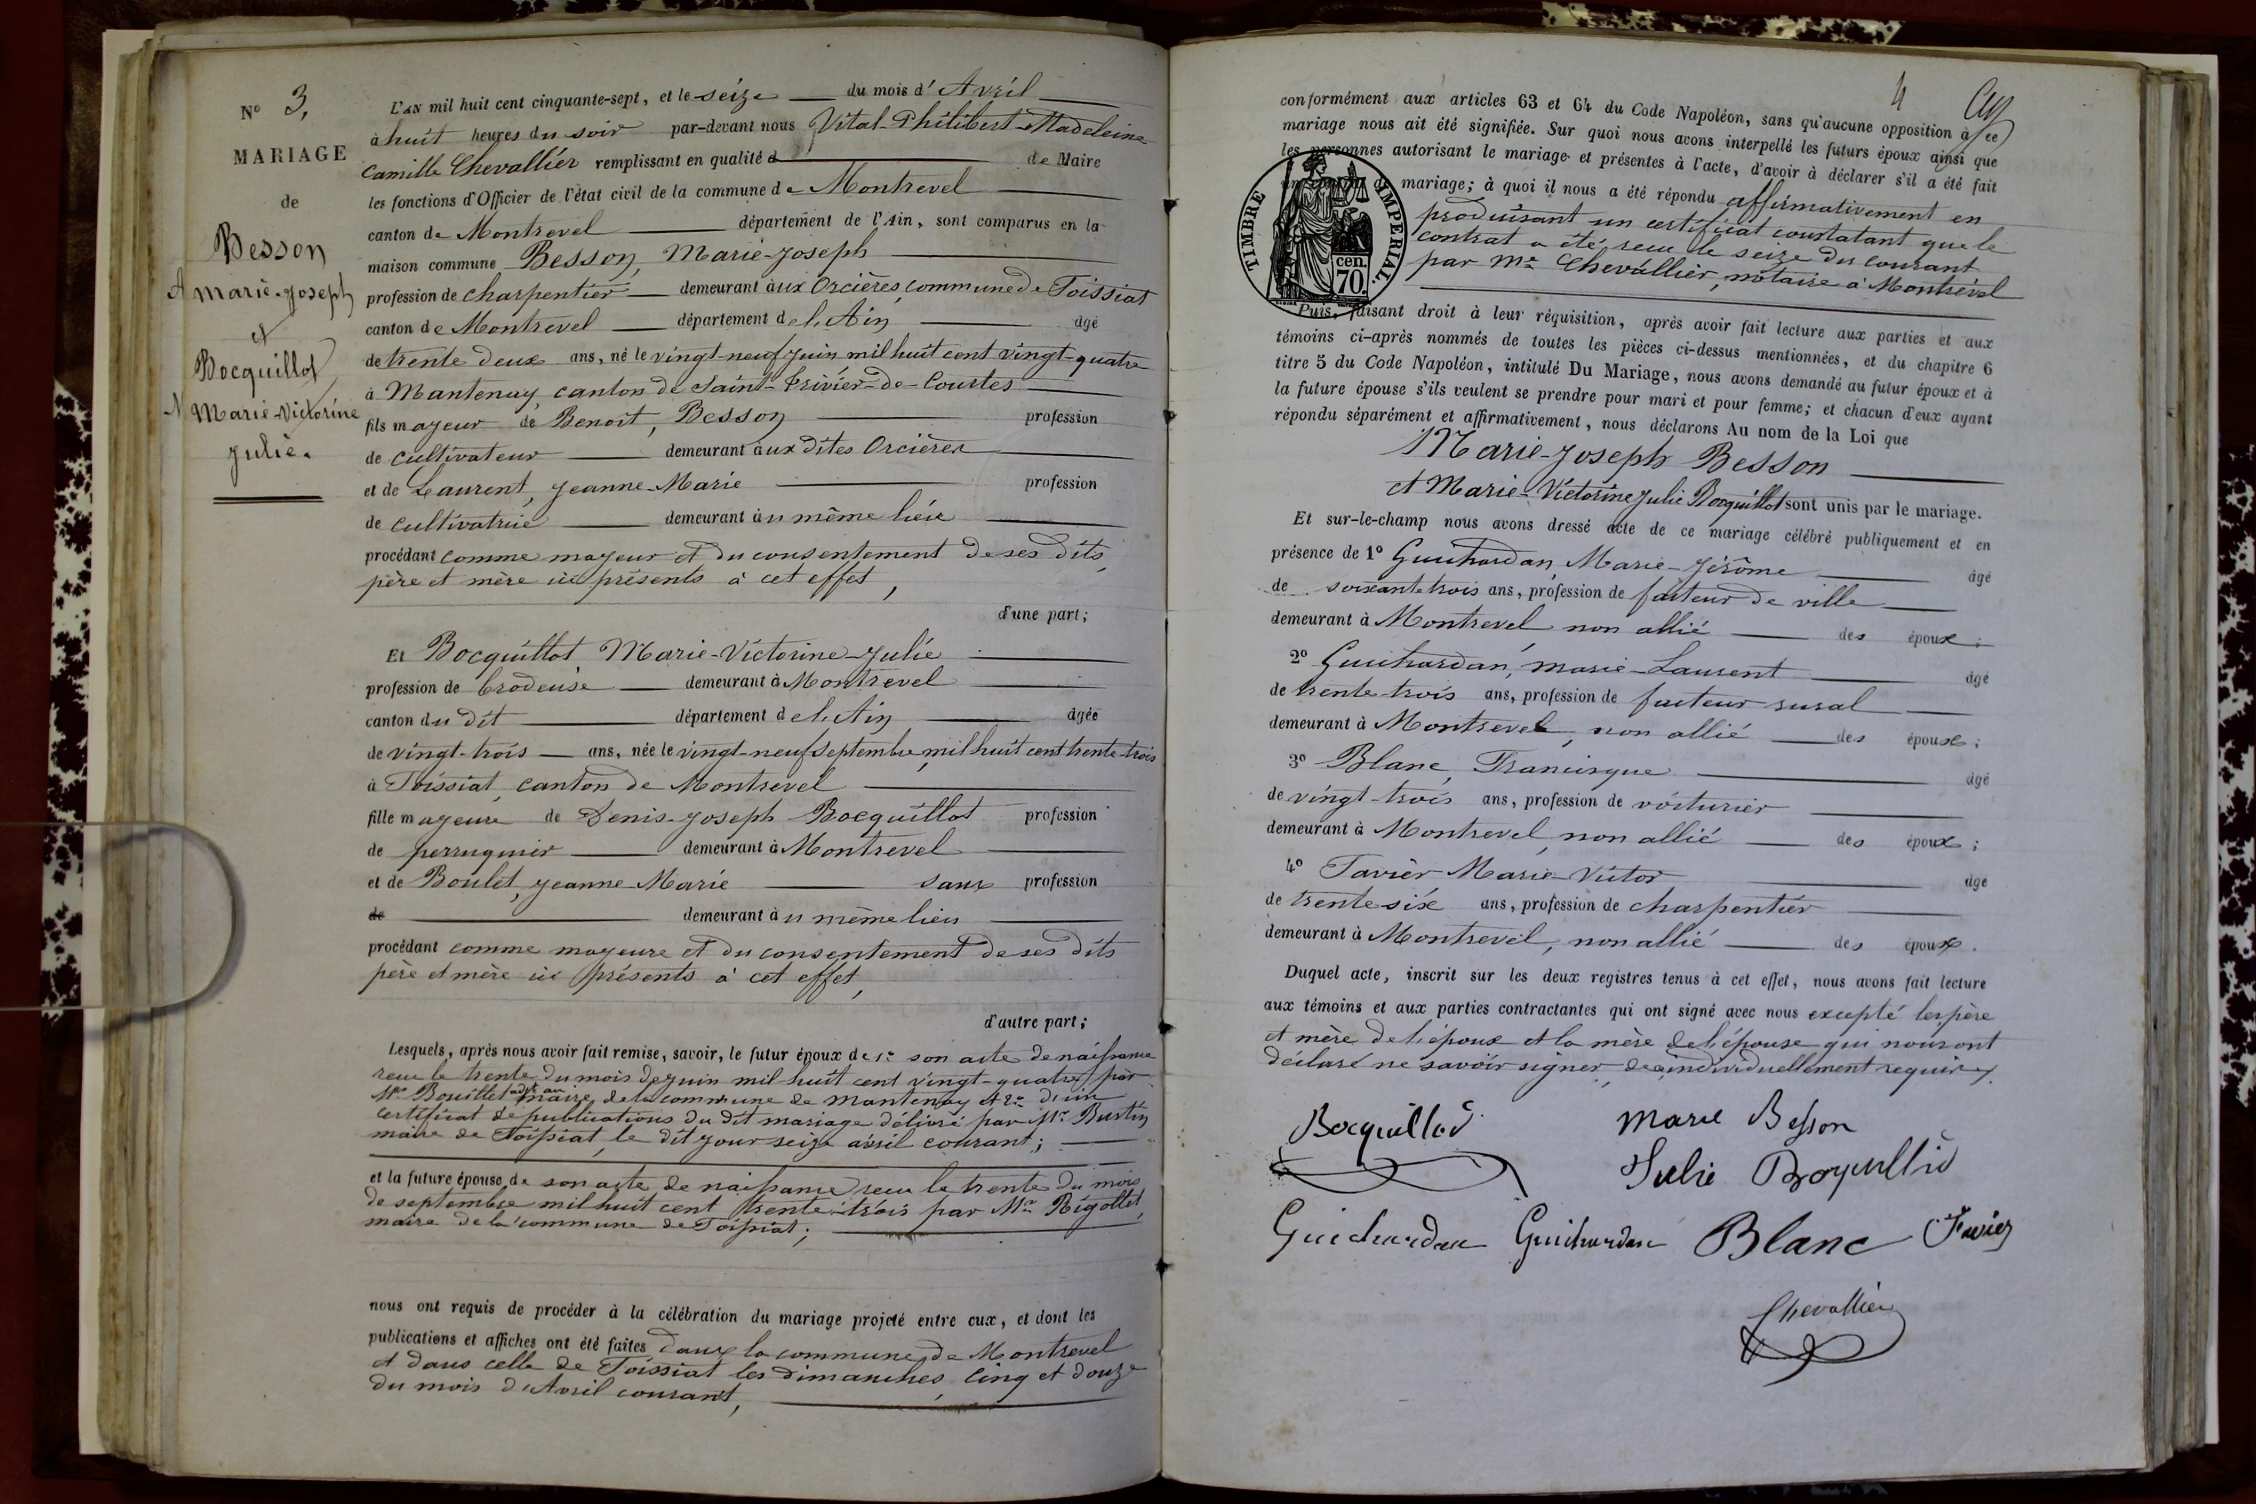 N° 3,
MARIAGE
de
Besson
Marie-Joseph
et
Bocquillod
Marie-Victorine
Julie.
L'AN mil huit cent cinquante-sept, et le seize du mois d'Avril
à huit heures du soir par-devant nous Vital-Philibert-Madeleine
Camille Chevallier remplissant en qualité de Maire
les fonctions d'Officier de l'état civil de la commune de Montrevel
canton de Montrevel département de l'Ain, sont comparus en la
maison commune Besson, Marie-Joseph
profession de charpentier demeurant aux Orcières, commune de Foissiat
canton de Montrevel département de l'Ain âgé
de trente deux ans, né le vingt-neuf juin mil huit cent vingt-quatre
à Mantenay, canton de Saint-Trivier-de-Courtes
fils majeur de Benoit, Besson profession
de cultivateur demeurant aux dites Orcières
et de Laurent, Jeanne-Marie profession
de cultivatrice demeurant au même lieu
procédant comme majeur et du consentement de ses dits
père et mère ici présents à cet effet,
d'une part;
Et Bocquillot, Marie-Victorine-Julie
profession de brodeuse demeurant à Montrevel
canton du dit département de l'Ain âgée
de vingt-trois ans, née le vingt-neuf septembre mil huit cent trente-trois
à Foissiat, canton de Montrevel
fille majeure de Denis-Joseph Bocquillot profession
de perruquier demeurant à Montrevel
et de Boulet, Jeanne-Marie sans profession
de demeurant au même lieu
procédant comme majeure et du consentement de ses dits
père et mère ici présents à cet effet,
d'autre part;
Lesquels, après nous avoir fait remise, savoir, le futur époux de 1° son acte de naissance
reçu le trente du mois de juin mil huit cent vingt-quatre par
Mr Bouillet maire de la commune de Mantenay et 2° d'un
certificat de publications du dit mariage délivré par Mr Bustin
maire de Foissiat, le dit jour seize avril courant;
et la future épouse de son acte de naissance reçu le trente du mois
de septembre mil huit cent trente-trois par Mr Rigollet,
maire de la commune de Foissiat;
nous ont requis de procéder à la célébration du mariage projeté entre eux, et dont les
publications et affiches ont été faites dans la commune de Montrevel
et dans celle de Foissiat les dimanches, cinq et douze
du mois d'Avril courant,
4
conformément aux articles 63 et 64 du Code Napoléon, sans qu'aucune opposition à ce
mariage nous ait été signifiée. Sur quoi nous avons interpellé les futurs époux ainsi que
les personnes autorisant le mariage et présentes à l'acte, d'avoir à déclarer s'il a été fait
mariage; à quoi il nous a été répondu affirmativement en
produisant un certificat constatant que le
contrat a été reçu le seize du courant
par Me Chevallier, notaire à Montrevel
TIMBRE IMPERIAL.
cen.
70.
Puis, faisant droit à leur réquisition, après avoir fait lecture aux parties et aux
témoins ci-après nommés de toutes les pièces ci-dessus mentionnées, et du chapitre 6
titre 5 du Code Napoléon, intitulé Du Mariage, nous avons demandé au futur époux et à
la future épouse s'ils veulent se prendre pour mari et pour femme; et chacun d'eux ayant
répondu séparément et affirmativement, nous déclarons Au nom de la Loi que
Marie-Joseph Besson
et Marie-Victorine Julie Bocquillot sont unis par le mariage.
Et sur-le-champ nous avons dressé acte de ce mariage célébré publiquement et en
présence de 1° Guichardan, Marie-Jérôme âgé
de soixante trois ans, profession de facteur de ville
demeurant à Montrevel non allié des époux;
2° Guichardan, Marie-Laurent âgé
de trente-trois ans, profession de facteur rural
demeurant à Montrevel, non allié des époux;
3° Blanc, Francisque âgé
de vingt-trois ans, profession de voiturier
demeurant à Montrevel, non allié des époux;
4° Favier Marie-Victor âgé
de trente-six ans, profession de charpentier
demeurant à Montrevel, non allié des époux.
Duquel acte, inscrit sur les deux registres tenus à cet effet, nous avons fait lecture
aux témoins et aux parties contractantes qui ont signé avec nous excepté les père
et mère de l'époux et la mère de l'épouse qui nous ont
déclaré ne savoir signer, de ce individuellement requis.
Bocquillod
Marie Besson
Julie Bocquillod
Guichardan Guichardan Blanc Favier
Chevallier